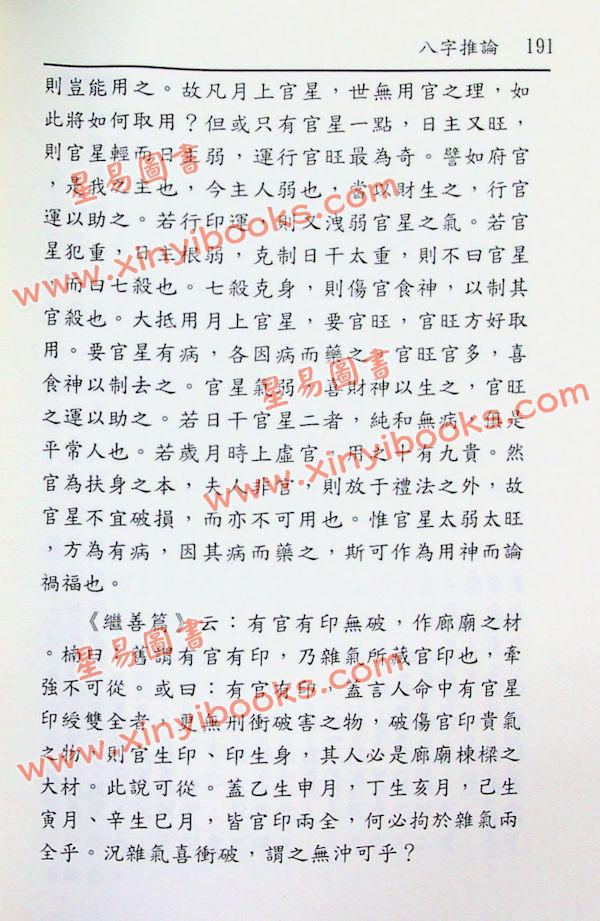 八字推論 191
則豈能用之。故凡月上官星，世無用官之理，如
此將如何取用？但或只有官星一點，日主又旺，
則官星輕而日主弱，運行官旺最為奇。譬如府官
，是我之主也，今主人弱也，當以財生之，行官
運以助之。若行印運，則又洩弱官星之氣。若官
星犯重，日主根弱，克制日干太重，則不曰官星
，而曰七殺也。七殺克身，則傷官食神，以制其
官殺也。大抵用月上官星，要官旺，官旺方好取
用。要官星有病，各因病而藥之，官旺官多，喜
食神以制去之。官星氣弱，喜財神以生之，官旺
之運以助之。若日干官星二者，純和無病，俱是
平常人也。若歲月時上虛官，用之十有九貴。然
官為扶身之本，夫人非官，則放于禮法之外，故
官星不宜破損，而亦不可用也。惟官星太弱太旺
，方為有病，因其病而藥之，斯可作為用神而論
禍福也。
《繼善篇》云：有官有印無破，作廊廟之材
。楠曰：舊謂有官有印，乃雜氣所藏官印也，牽
強不可從。或曰：有官有印，蓋言人命中有官星
印綬雙全者，更無刑衝破害之物，破傷官印貴氣
之物，則官生印、印生身，其人必是廊廟棟樑之
大材。此說可從。蓋乙生申月，丁生亥月，己生
寅月、辛生巳月，皆官印兩全，何必拘於雜氣兩
全乎。況雜氣喜衝破，謂之無沖可乎？
星易圖書
www.xinyibooks.com
星易圖書
www.xinyibooks.com
星易圖書
www.xinyibooks.com